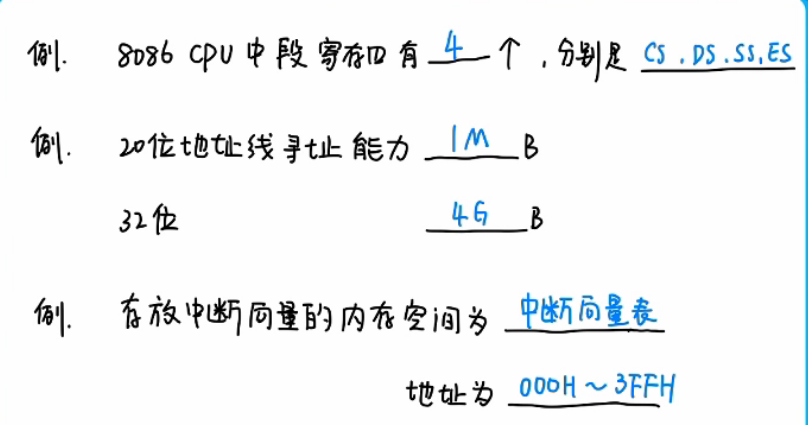 例. 8086 CPU 中段寄存四有 4 个,分别是 CS.DS.SS,ES
例. 20位地址线寻址能力 1M B
32位 4G B
例. 存放中断向量的内存空间为 中断向量表
地址为 000H~3FFH